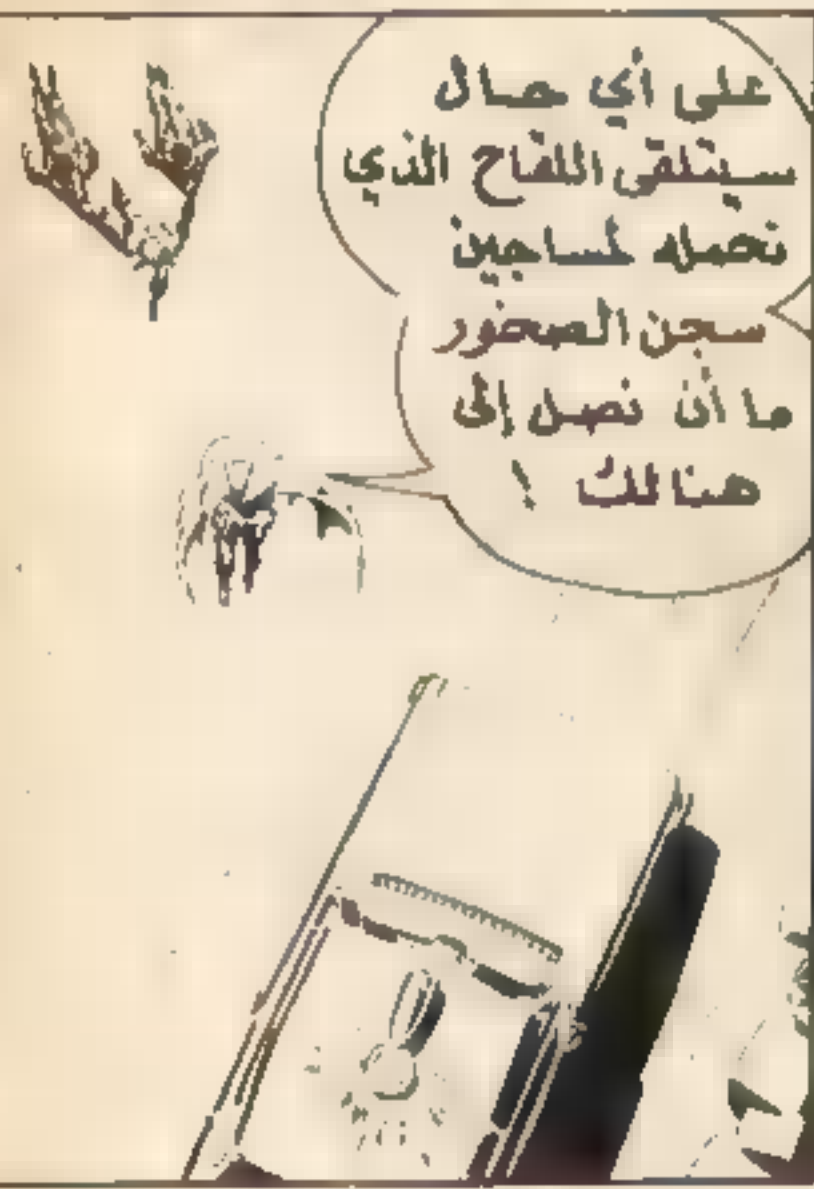 على أي حال
سيتلقى اللقاح الذي
نحمله لمساجين
سجن الصخور
ما أن نصل إلى
هنالك !